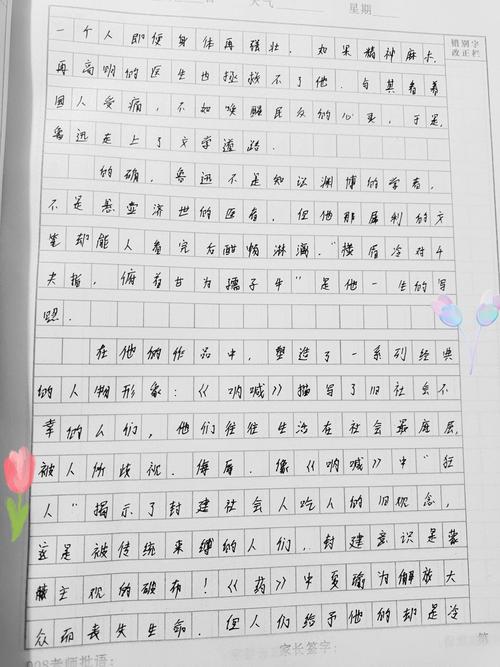 天气
星期
错别字
改正栏
一个人即便身体再强壮，如果精神麻木，
再高明的医生也拯救不了他。与其看着
国人受病，不如唤醒民众的心灵，于是，
鲁迅走上了文学道路。
的确，鲁迅不是知识渊博的学者，
不是悬壶济世的医者，但他那犀利的文
笔却能人看完后酣畅淋漓。“横眉冷对千
夫指，俯首甘为孺子牛”是他一生的写
照。
在他的作品中，塑造了一系列经典
的人物形象：《呐喊》描写了旧社会不
幸的人们，他们往往生活在社会最底层，
被人所歧视、侮辱。像《呐喊》中“狂
人”揭示了封建社会人吃人的旧观念，
这是被传统束缚的人们，封建意识是蒙
臃主观的破布！《药》中夏瑜为解放大
众而丧失生命，但人们给予他的却是冷
老师批语：
家长签字：
第